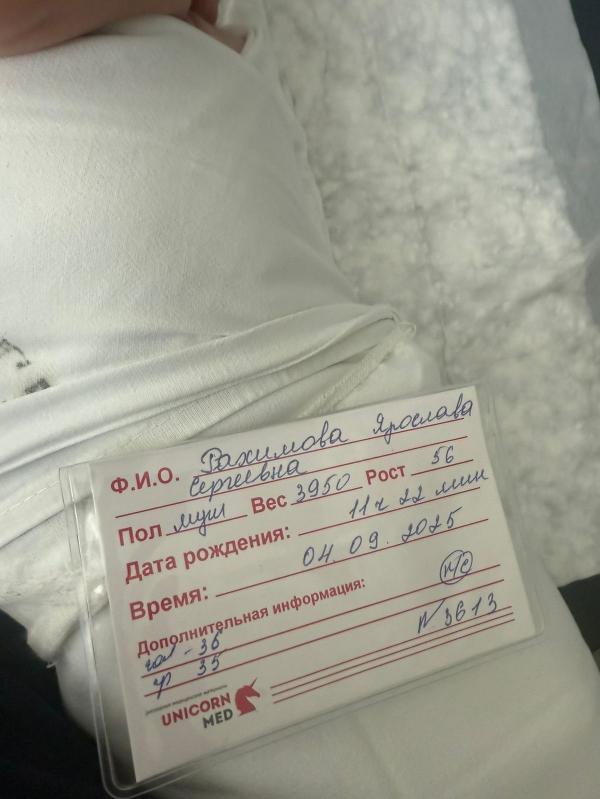 Ф.И.О. Рахимова Ярослава
Сергеевна
Пол муж Вес 3950 Рост 56
Дата рождения: 11 ч 22 мин
Время: 04. 09. 2025
Дополнительная информация: п/с
гол - 36
гр 35 N 3613
UNICORN
MED